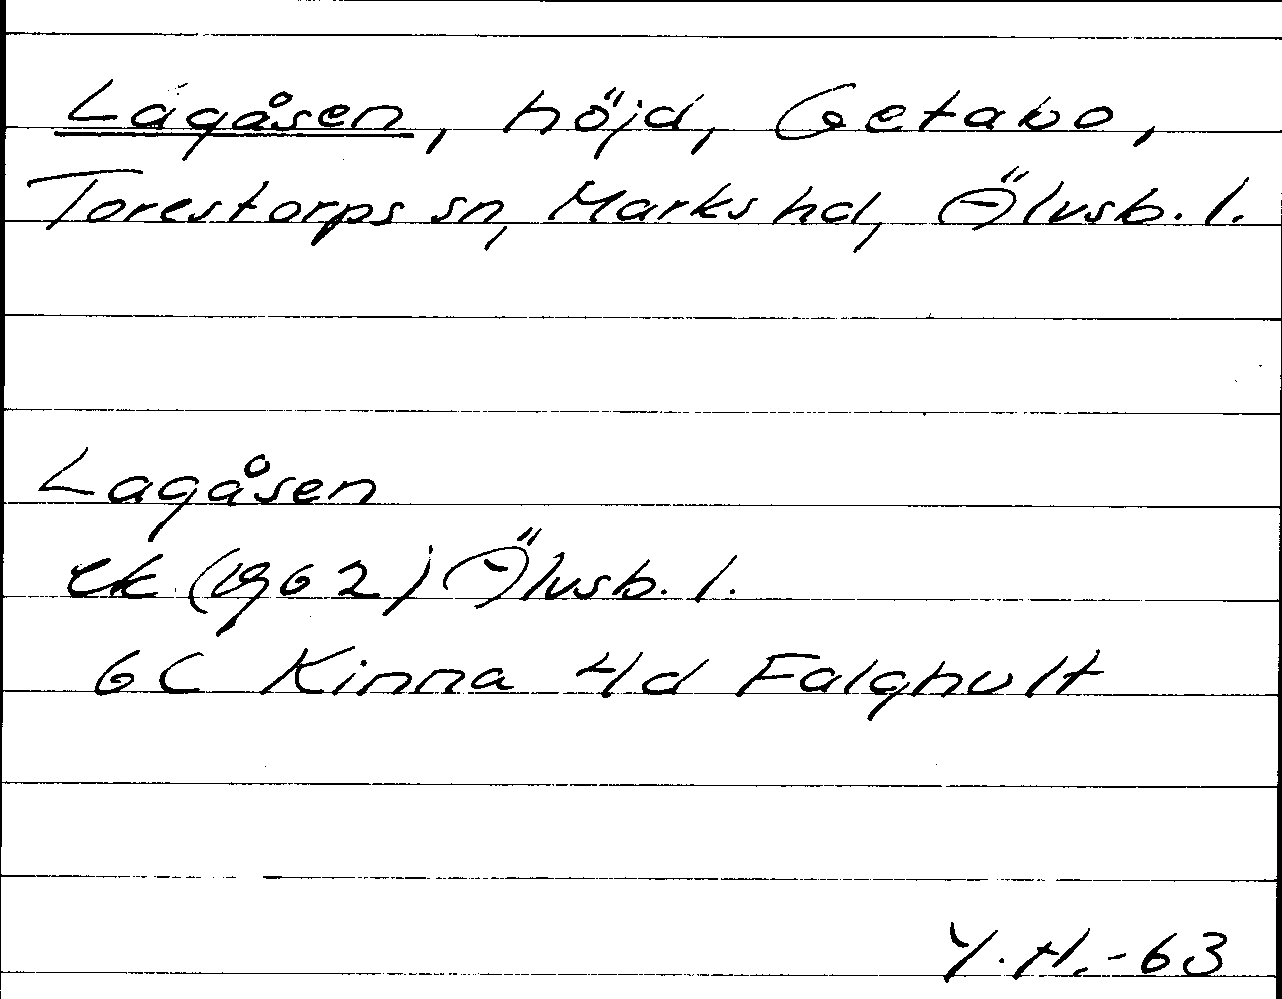 Lagåsen, höjd, Getabo,
Torestorps sn, Marks hd, Älvsb. l.
Lagåsen
ek (1962) Älvsb. l.
6C Kinna 4d Falghult
Y.H.-63